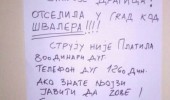 ДРАГИЦА!
ОТСЕЛИЛА У ГРАД КОД
ШВАЛЕРА!!!
СТРУЈУ НИЈЕ ПЛАТИЛА
ДИНАРА ДУГ
ТЕЛЕФОН ДУГ 1260 ДИН.
АКО ЗНАТЕ
ЈАВИТИ ДА ДОЂЕ!